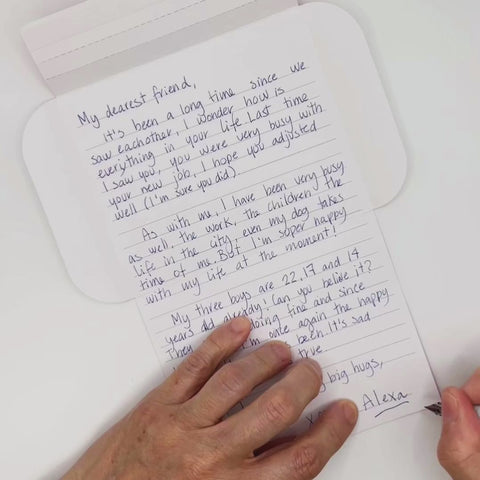 My dearest friend,
It's been a long time since we
saw eachother, I wonder how is
everything in your life. Last time
I saw you, you were very busy with
your new job, I hope you adjusted
well (I'm sure you did).
As with me, I have been very busy
as well, the work, the children, the
life in the city, even my dog takes
time of me. But I'm soper happy
with my life at the moment!
My three boys are 22, 17 and 14
years old already! Can you belive it?
They doing fine and since
I'm once again the happy
been. It's sad
true
big hugs,
Alexa